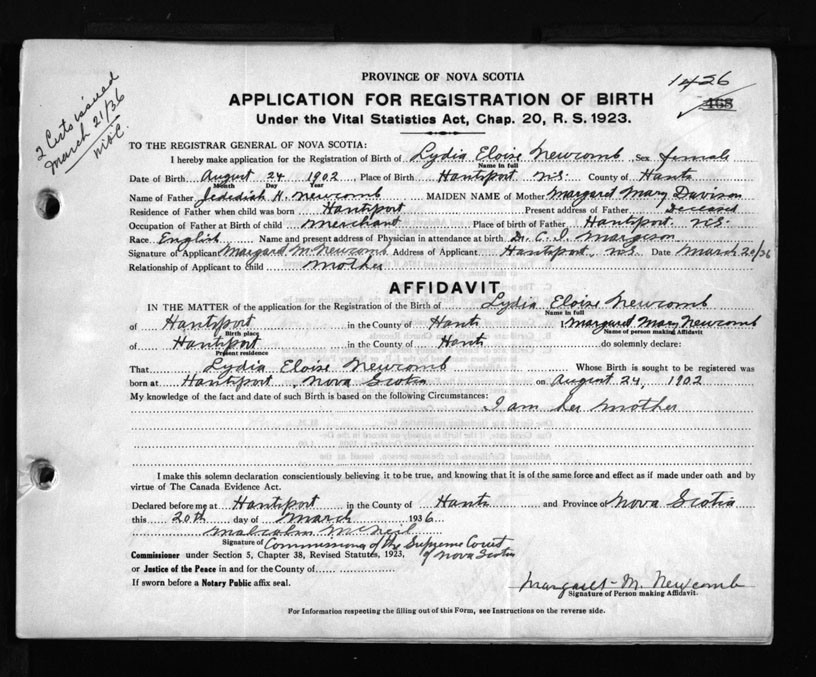 PROVINCE OF NOVA SCOTIA
1426
468
2 Certs issued
March 21/36
APPLICATION FOR REGISTRATION OF BIRTH
Under the Vital Statistics Act, Chap. 20, R. S. 1923.
TO THE REGISTRAR GENERAL OF NOVA SCOTIA:
I hereby make application for the Registration of Birth of Lydia Eloise Newcomb Sex female
Name in full
Date of Birth August 24 1902 Place of Birth Hantsport N.S. County of Hants
Month Day Year
Name of Father Jedediah H. Newcomb MAIDEN NAME of Mother Margaret Mary Davison
Residence of Father when child was born Hantsport Present address of Father Deceased
Occupation of Father at Birth of child Merchant Place of birth of Father Hantsport N.S.
Race English Name and present address of Physician in attendance at birth Dr. C. I. Margeson
Signature of Applicant Margaret M. Newcomb Address of Applicant Hantsport, N.S. Date March 20/36
Relationship of Applicant to child mother
AFFIDAVIT
IN THE MATTER of the application for the Registration of the Birth of Lydia Eloise Newcomb
Name in full
of Hantsport in the County of Hants I Margaret Mary Newcomb
Birth place Name of person making Affidavit
of Hantsport in the County of Hants do solemnly declare:
Present residence
That Lydia Eloise Newcomb Whose Birth is sought to be registered was
born at Hantsport, Nova Scotia on August 24, 1902
My knowledge of the fact and date of such Birth is based on the following Circumstances:
I am her mother
I make this solemn declaration conscientiously believing it to be true, and knowing that it is of the same force and effect as if made under oath and by
virtue of The Canada Evidence Act.
Declared before me at Hantsport in the County of Hants and Province of Nova Scotia
this 20th day of March 1936
Malcolm McNeil
Signature of Commissioner of the Supreme Court
of Nova Scotia
Commissioner under Section 5, Chapter 38, Revised Statutes, 1923,
or Justice of the Peace in and for the County of
If sworn before a Notary Public affix seal.
Margaret M. Newcomb
Signature of Person making Affidavit.
For Information respecting the filling out of this Form, see Instructions on the reverse side.